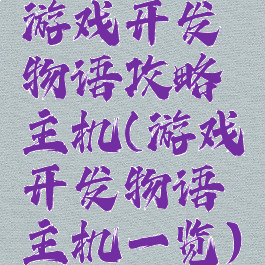 游戏开发
物语攻略
主机(游戏
开发物语
主机一览)